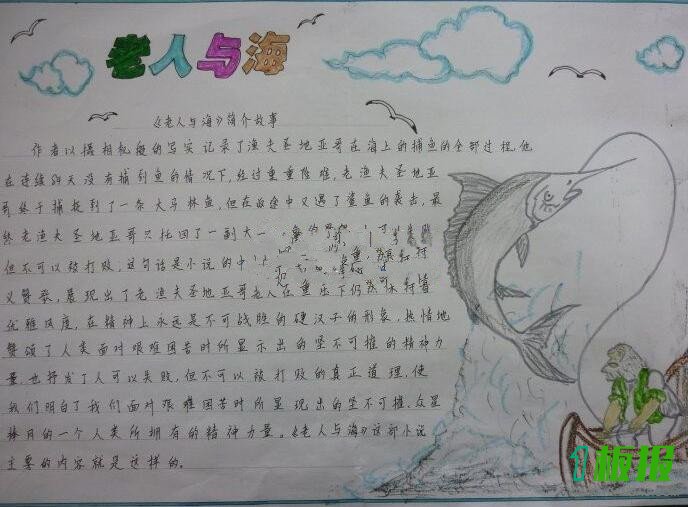 老人与海
《老人与海》简介故事
作者以摄相机般的写实记录了渔夫圣地亚哥在海上的捕鱼的全部过程,他
在连续84天没有捕到鱼的情况下,经过重重险难,老渔夫圣地亚
哥终于捕捉到了一条大马林鱼,但在返途中又遇了鲨鱼的袭击,最
终老渔夫圣地亚哥只拖回了一副大
但不可以被打败,这句话是小说的中
义赞歌,展现出了老渔夫圣地亚哥老人在重压下仍
优雅风度,在精神上永远是不可战胜的硬汉子的形象,热情地
赞颂了人类面对艰难困苦时所显示出的坚不可摧的精神力
量.也抒发了人可以失败,但不可以被打败的真正道理,使
我们明白了我们面对艰难困苦时所显现出的坚不可摧,众星
捧月的一个人类所拥有的精神力量。《老人与海》这部小说
主要的内容就是这样的。
板报